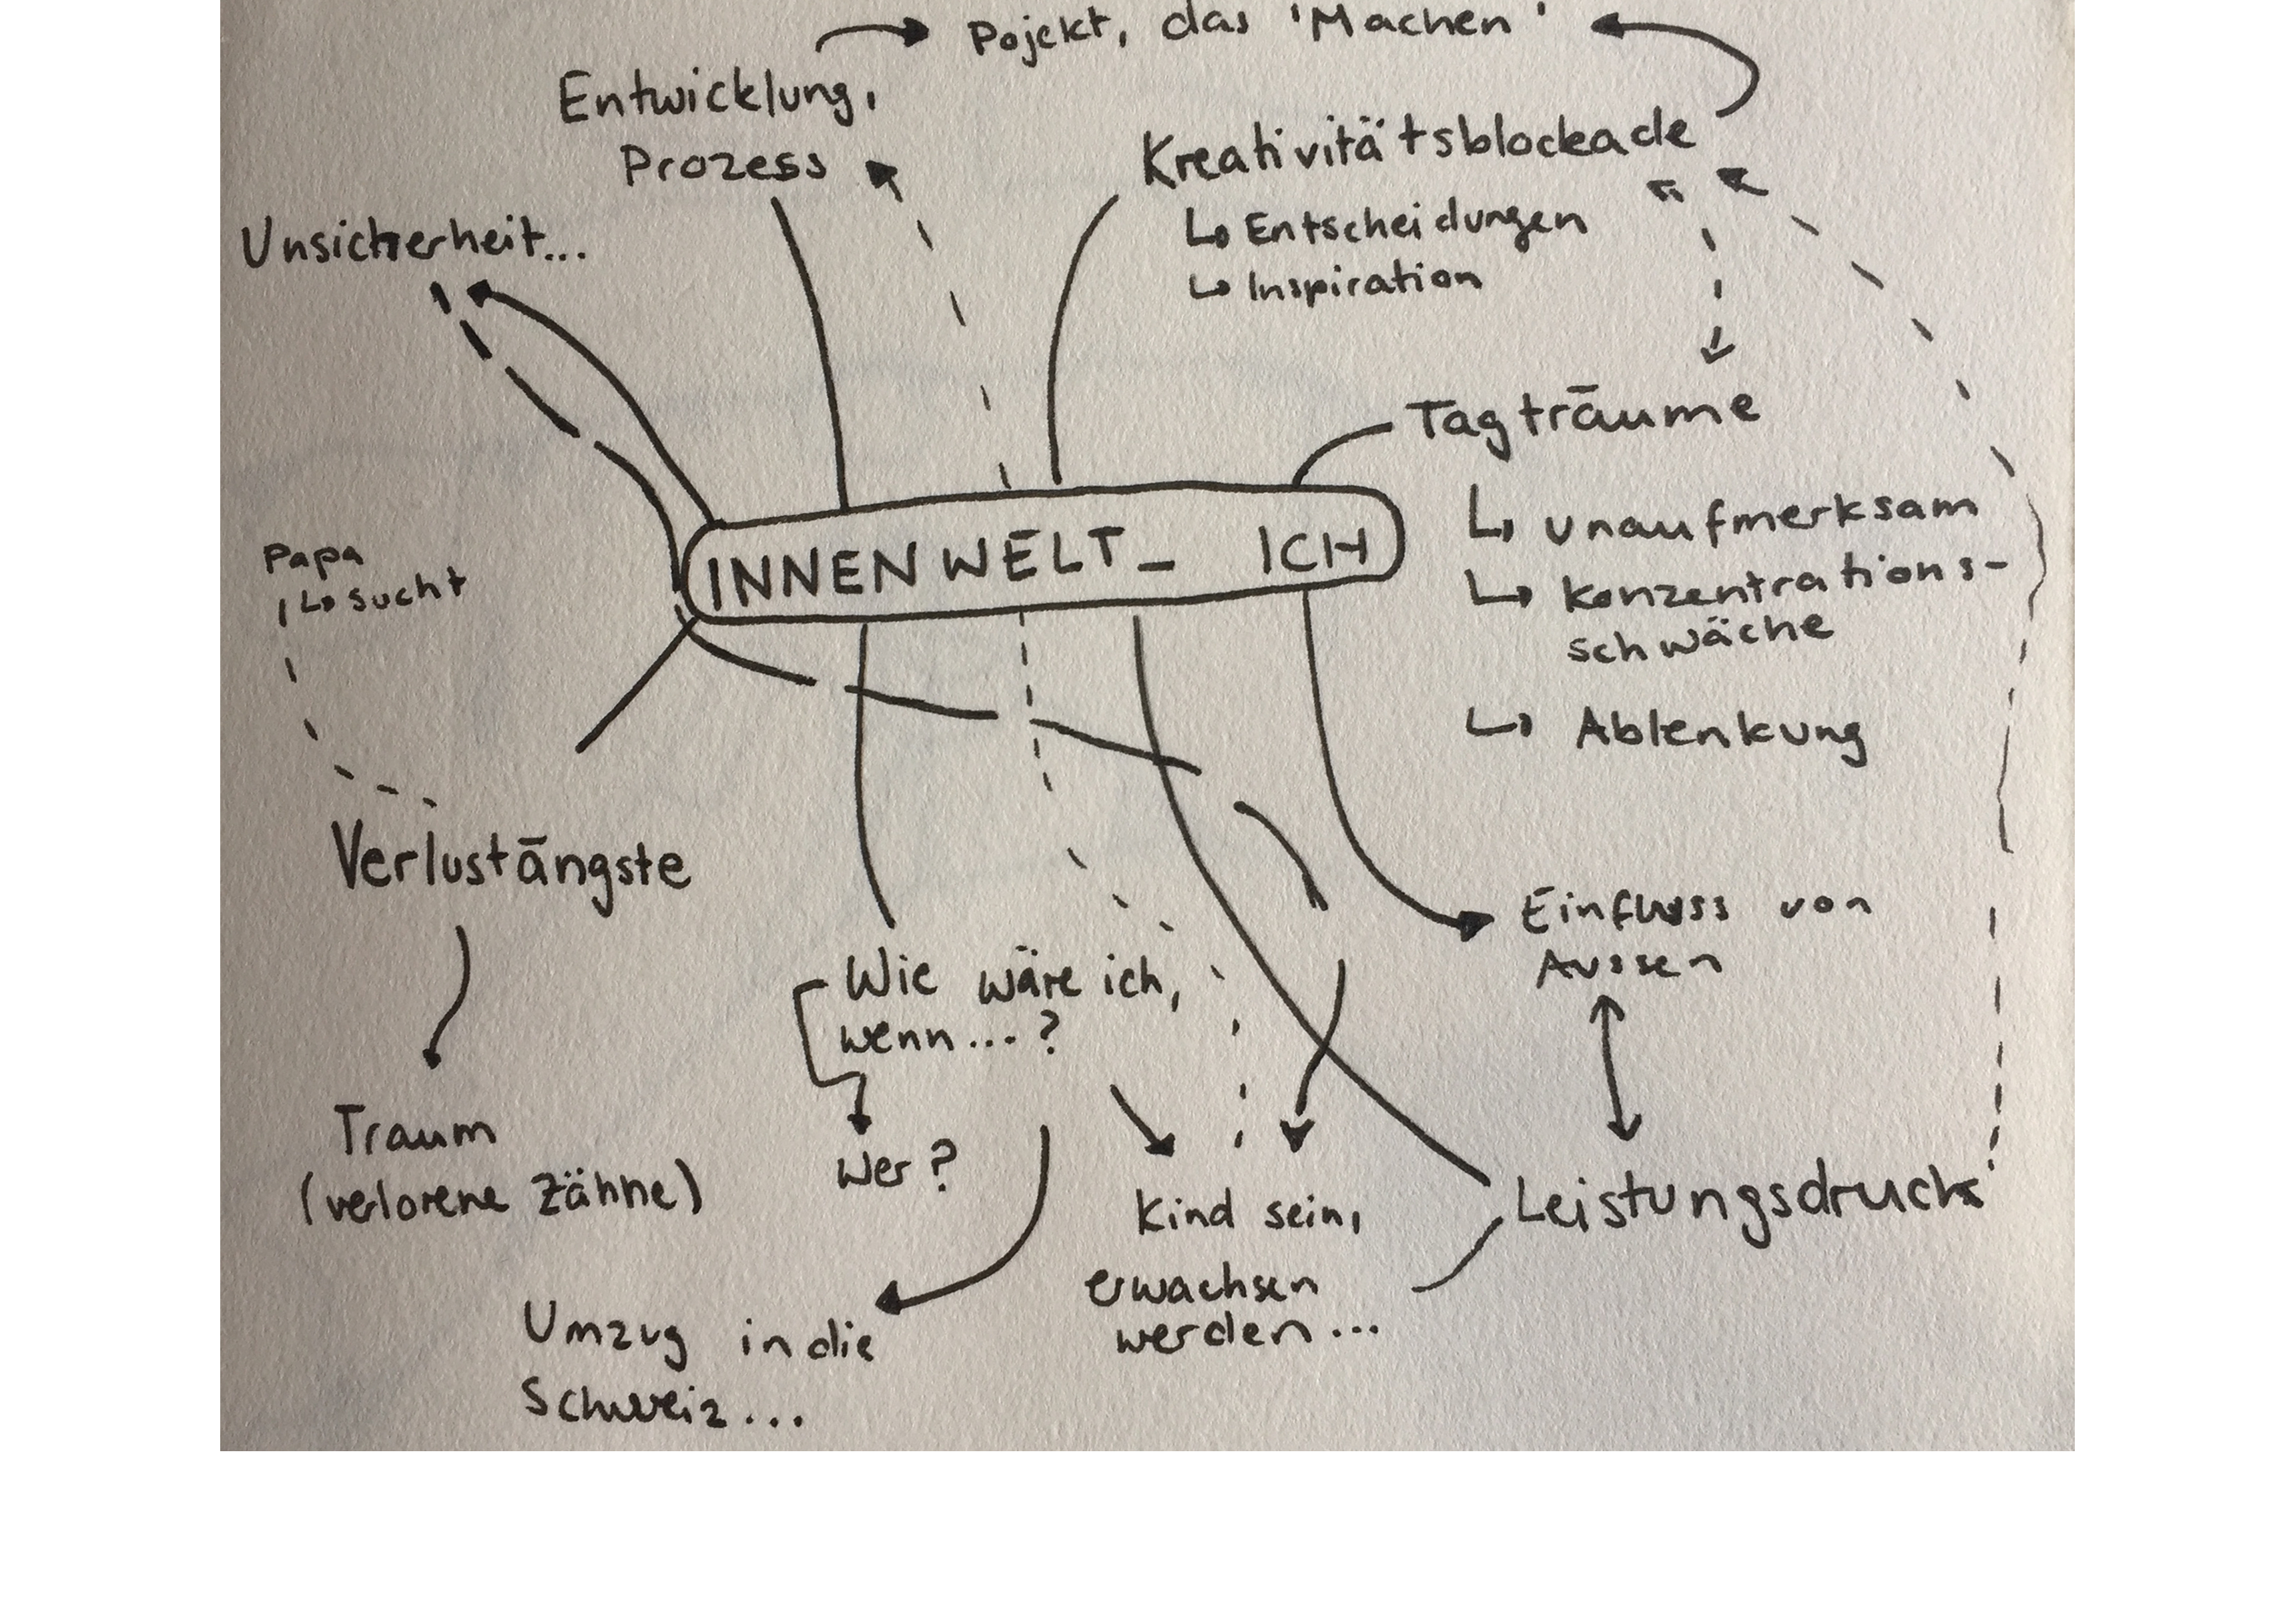 Pojekt, das 'Machen'
Entwicklung,
Prozess
Kreativitätsblockade
↳ Entscheidungen
↳ Inspiration
Unsicherheit...
Tagträume
↳ unaufmerksam
↳ konzentrations-
schwäche
↳ Ablenkung
INNENWELT_ ICH
Papa
↳ sucht
Verlustängste
Traum
(verlorene Zähne)
Wie wäre ich,
wenn...?
Wer?
Umzug in die
Schweiz...
Kind sein,
erwachsen
werden...
Einfluss von
Aussen
Leistungsdruck